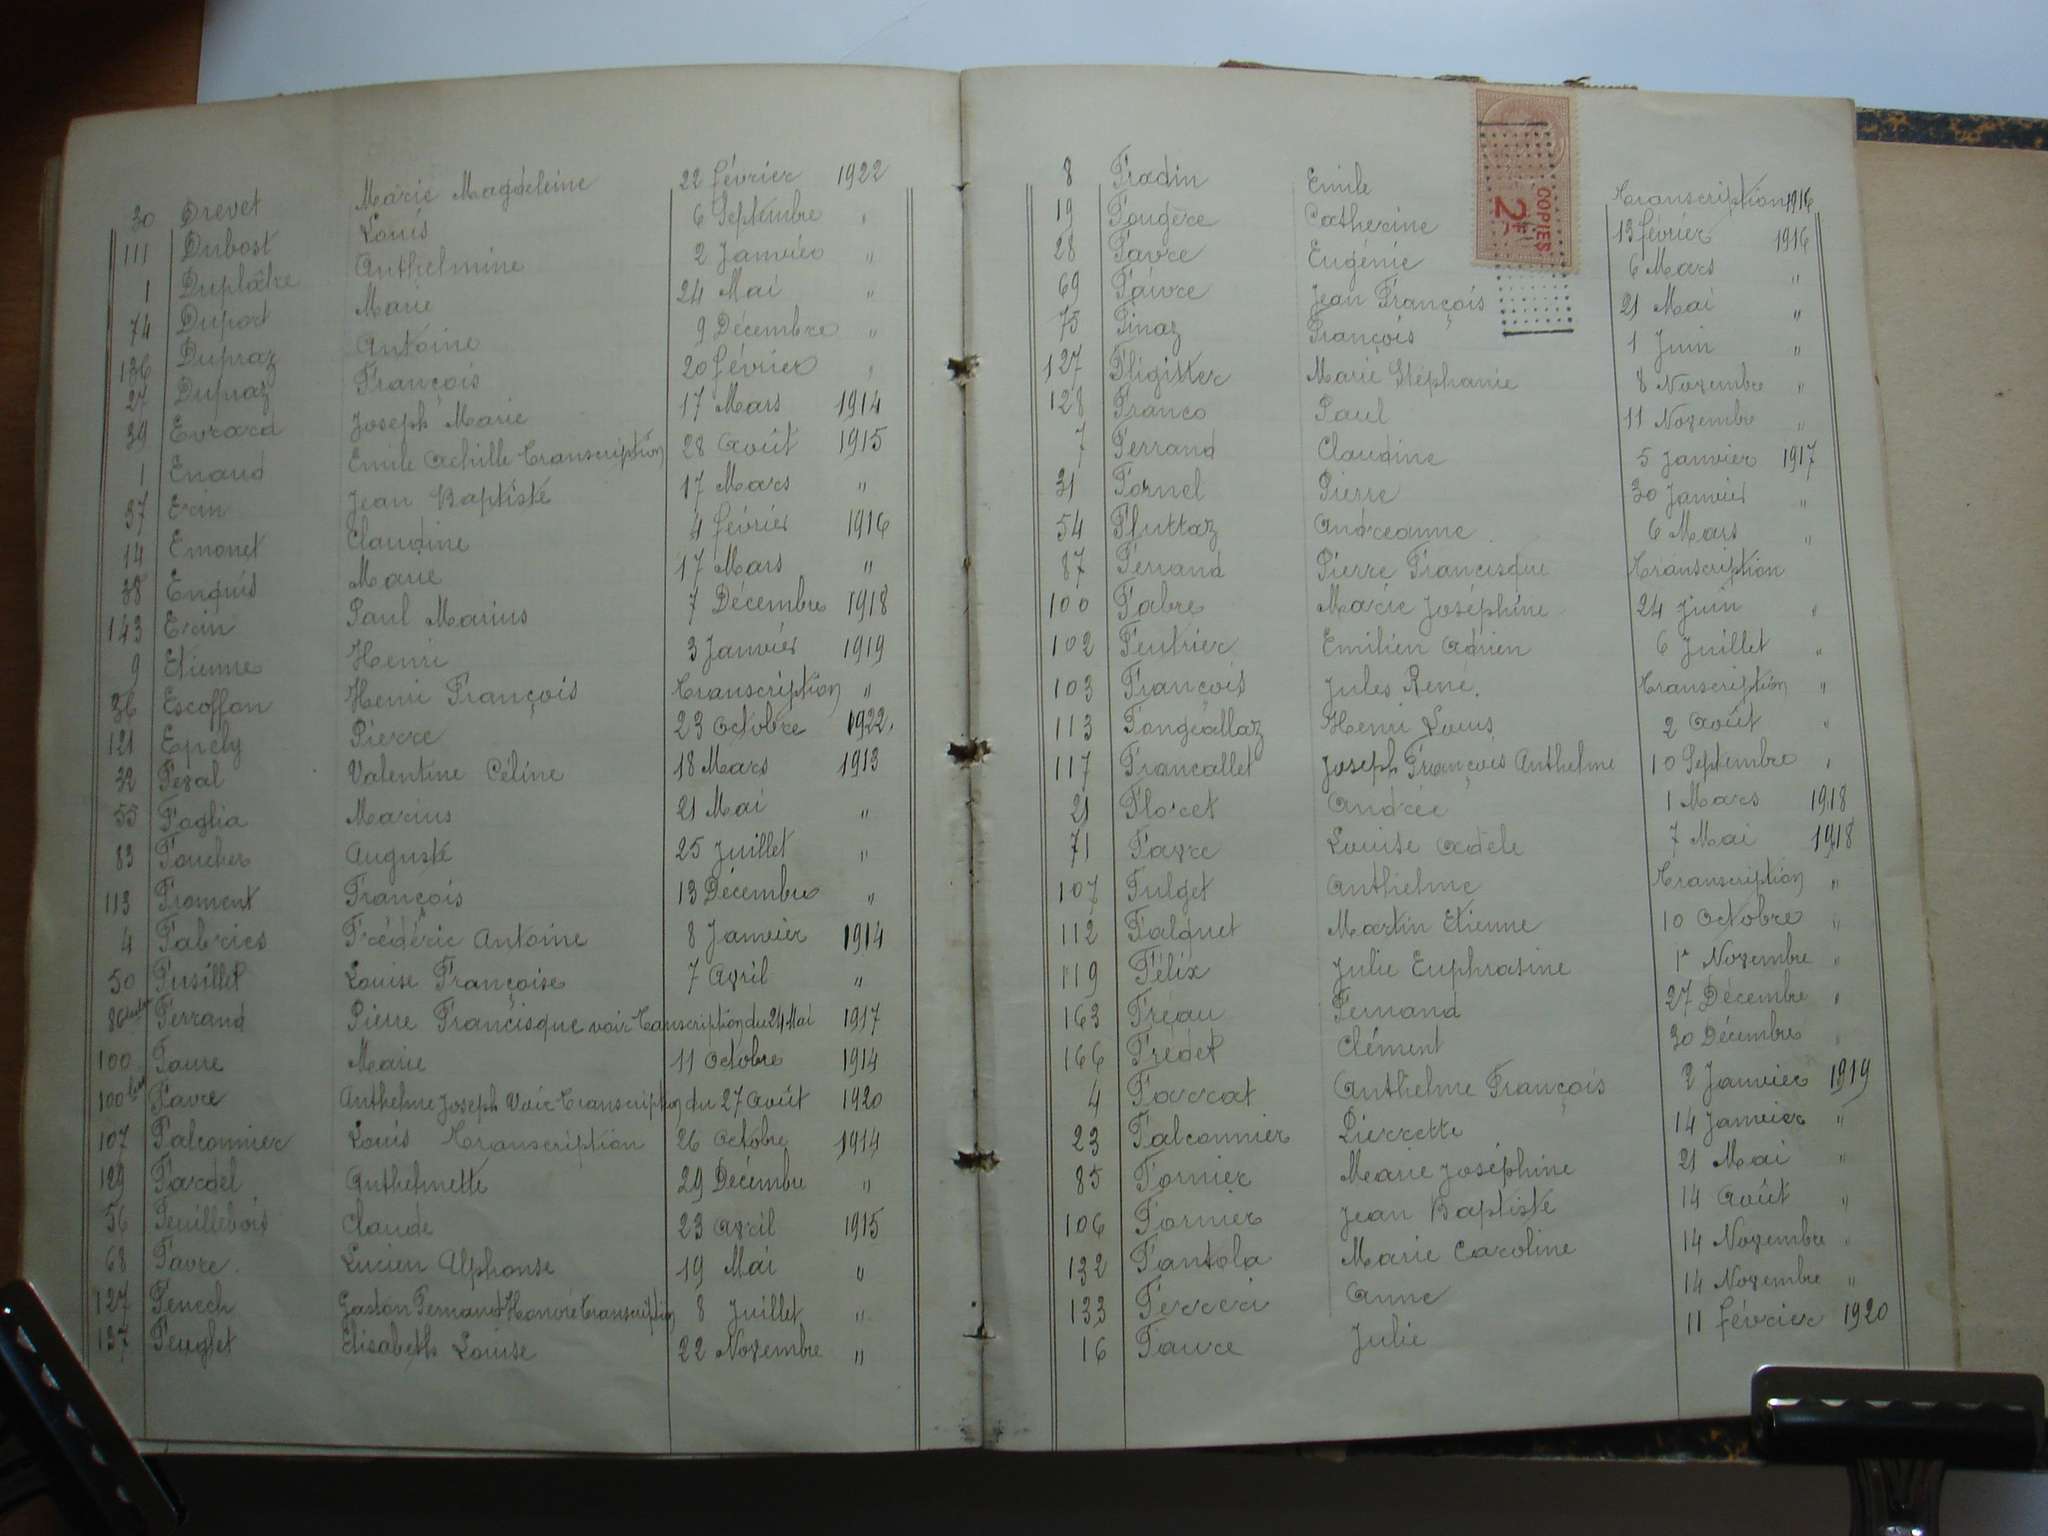 30 Drevet Marie Magdeleine 22 février 1922
111 Dubost Louis 6 Septembre "
1 Duplâtre Anthelmine 2 Janvier "
74 Duport Marie 24 Mai "
136 Dupraz Antoine 9 Décembre "
27 Dupraz François 20 février "
39 Evrard Joseph Marie 17 Mars 1914
1 Enaud Emile Achille Transcription 28 Août 1915
37 Erin Jean Baptiste 17 Mars "
14 Emonet Claudine 4 février 1916
38 Enguis Marie 17 Mars "
143 Erin Paul Marius 7 Décembre 1918
9 Etienne Henri 3 Janvier 1919
36 Escoffon Henri François Transcription "
121 Epely Pierre 23 Octobre 1922.
32 Feval Valentine Céline 18 Mars 1913
55 Faglia Marius 21 Mai "
83 Foucher Auguste 25 Juillet "
113 Froment François 13 Décembre "
4 Fabries Frédéric Antoine 8 Janvier 1914
50 Fusillet Louise Françoise 7 Avril "
86 Ferrand Pierre Francisque voir Transcription du 24 Mai 1917
100 Faure Marie 11 Octobre 1914
100 bis Favre Anthelme Joseph Voir Transcription du 27 Août 1920
107 Falconnier Louis Transcription 26 Octobre 1914
129 Fardel Anthelmette 29 Décembre "
56 Feuillebois Claude 23 Avril 1915
68 Favre. Lucien Alphonse 19 Mai "
127 Fenech Gaston Fernand Honoré Transcription 8 Juillet "
137 Feuglet Elisabeth Louise 22 Novembre "
8 Fradin Emile Transcription 1916
19 Fougère Catherine 13 février 1916
28 Favre Eugénie 6 Mars "
69 Faivre Jean François 21 Mai "
75 Finaz François 1 Juin "
127 Fligitter Marie Stéphanie 8 Novembre "
128 Franco Paul 11 Novembre "
7 Ferrand Claudine 5 Janvier 1917
31 Fornel Pierre 30 Janvier "
54 Fluttaz Andréanne 6 Mars "
87 Ferrand Pierre Francisque Transcription
100 Fabre Marie Joséphine 24 Juin "
102 Feutrier Emilien Adrien 6 Juillet "
103 François Jules René. Transcription "
113 Fongeallaz Henri Louis 2 Août "
117 Francallet Joseph François Anthelme 10 Septembre "
21 Floret Andrée 1 Mars 1918
71 Favre Louise Adèle 7 Mai 1918
107 Fulget Anthelme Transcription "
112 Falquet Martin Etienne 10 Octobre "
119 Félix Julie Euphrasine 1er Novembre "
163 Fréau Fernand 27 Décembre "
166 Frédet Clément 30 Décembre "
4 Farrat Anthelme François 2 Janvier 1919
23 Falconnier Pierrette 14 Janvier "
85 Fornier Marie Joséphine 21 Mai "
106 Fornier Jean Baptiste 14 Août "
132 Fantola Marie Caroline 14 Novembre "
133 Ferreri Anne 14 Novembre "
16 Faure Julie 11 février 1920
COPIES
2F